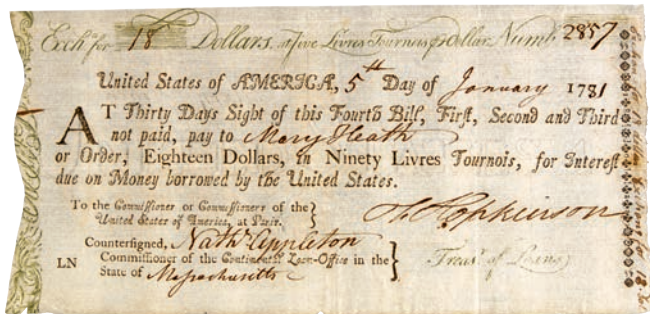 Exch.ᵃ for 18 Dollars, at five Livres Tournois ℘ Dollar, Numb. 2857
United States of AMERICA, 5th Day of January 1781
AT Thirty Days Sight of this Fourth Bill, First, Second and Third
not paid, pay to Mary Heath
or Order, Eighteen Dollars, in Ninety Livres Tournois, for Interest
due on Money borrowed by the United States.
To the Commissioner or Commissioners of the
United States of America, at Paris.
F. Hopkinson
Treasr. of Loans
Countersigned, Nathl Appleton
LN Commissioner of the Continental Loan-Office in the
State of Massachusetts